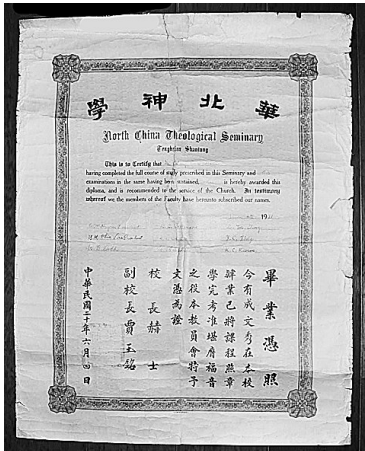 華北神學
North China Theological Seminary
Tenghsien Shantung
This is to Certify that
having completed the full course of study prescribed in this Seminary and
examinations in the same having been sustained, is hereby awarded this
diploma, and is recommended to the service of the Church. In testimony
whereof we, the members of the Faculty have hereunto subscribed our names.
19
畢業憑照
今有成文秀在本校
肄業已將課程照章
學完考准堪膺福音
之役本教員會特予
文憑為證
校長赫士
副校長賈玉銘
中華民國二十年六月四日